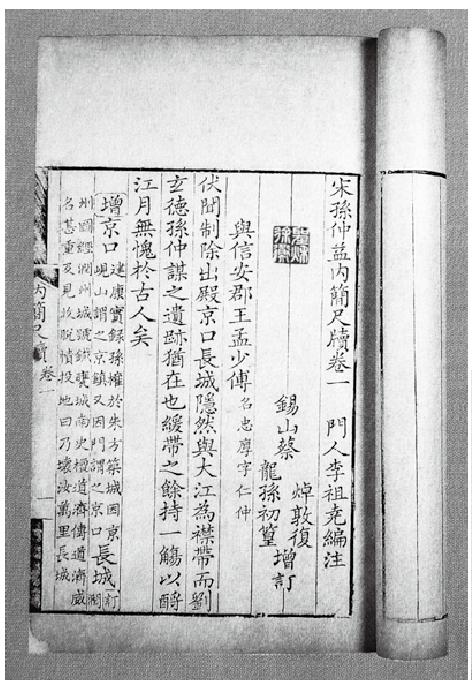 宋孫仲益內簡尺牘卷一　門人李祖堯編注
錫山蔡　焯敦復
龍孫初篁　增訂
與信安郡王孟少傅　名忠厚字仁仲
伏聞制除出殿京口長城隱然與大江為襟帶而劉
玄德孫仲謀之遺跡猶在也緩帶之餘持一觴以酹
江月無愧於古人矣
增京口　建康實錄孫權於朱方築城因京
峴山謂之京鎮又因門謂之京口　長城　訂潤
州圖經潤州城號鐵甕城南史檀道濟傳道濟威
名甚重及見收脫幘投地曰乃壞汝萬里長城
內簡尺牘　卷一